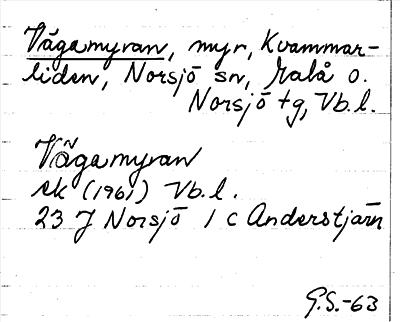 Vågamyran, myr, Kvammar-
liden, Norsjö sn, Malå o.
Norsjö tg, Vb. l.
Vågamyran
ek (1961) Vb. l.
23 J Norsjö 1 c Anderstjärn
G.S.-63